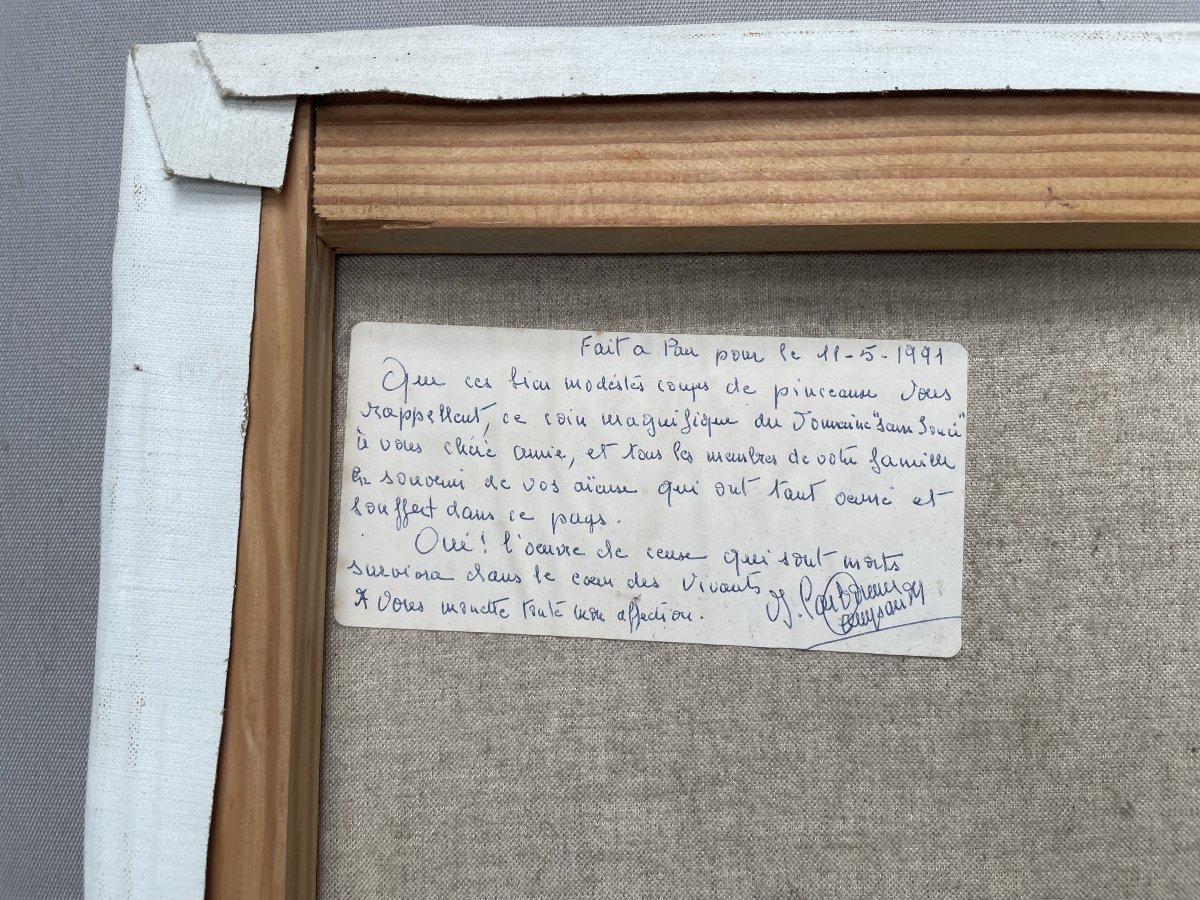 Fait a Pau pour le 11-5-1991
Que ces bien modestes coups de pinceaux vous
rappellent, ce coin magnifique du Domaine "Sans Souci"
à vous chère amie, et tous les membres de votre famille
En souvenir de vos aïeux qui ont tant oeuvré et
souffert dans ce pays.
Oui! l'oeuvre de ceux qui sont morts
survivra dans le coeur des vivants
A vous toute mon affection.